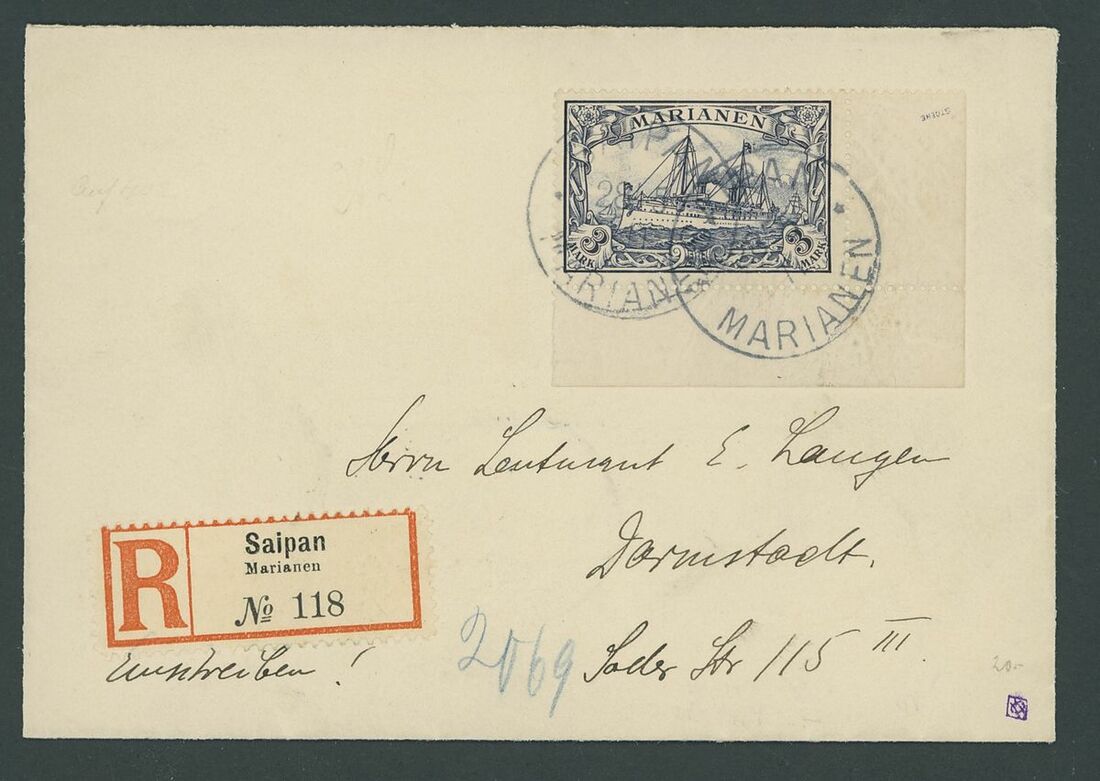 MARIANEN
3 MARK
3 MARK
SAIPAN
28
MARIANEN
SAIPAN
MARIANEN
Herrn Leutnant E. Langen
Darmstadt.
Soder Str 115 III.
R
Saipan
Marianen
No 118
Einschreiben!
2069
20.-